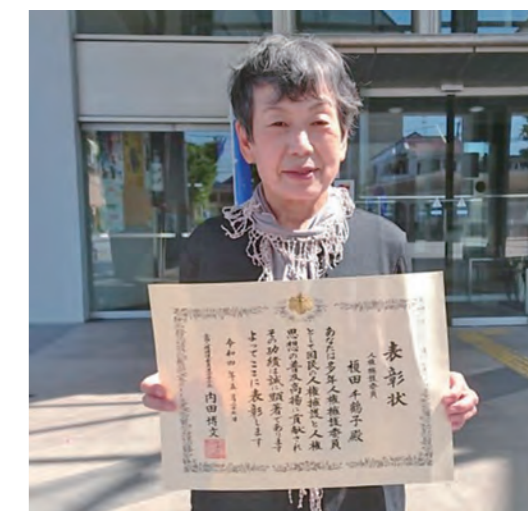 表彰状
人権擁護委員
榎田千鶴子殿
あなたは多年人権擁護委員
として国民の人権擁護と人権
思想の普及高揚に貢献され
その功績は誠に顕著であります
よってここに表彰します
令和四年五月
内田博文